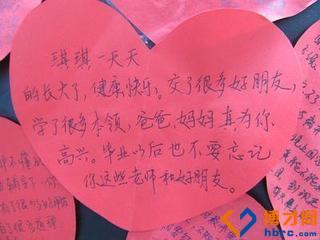 琪琪一天天
的长大了，健康快乐。交了很多好朋友，
学了很多本领，爸爸、妈妈真为你
高兴。毕业以后也不要忘记
你这些老师和好朋友。
博才网
hbrc.com